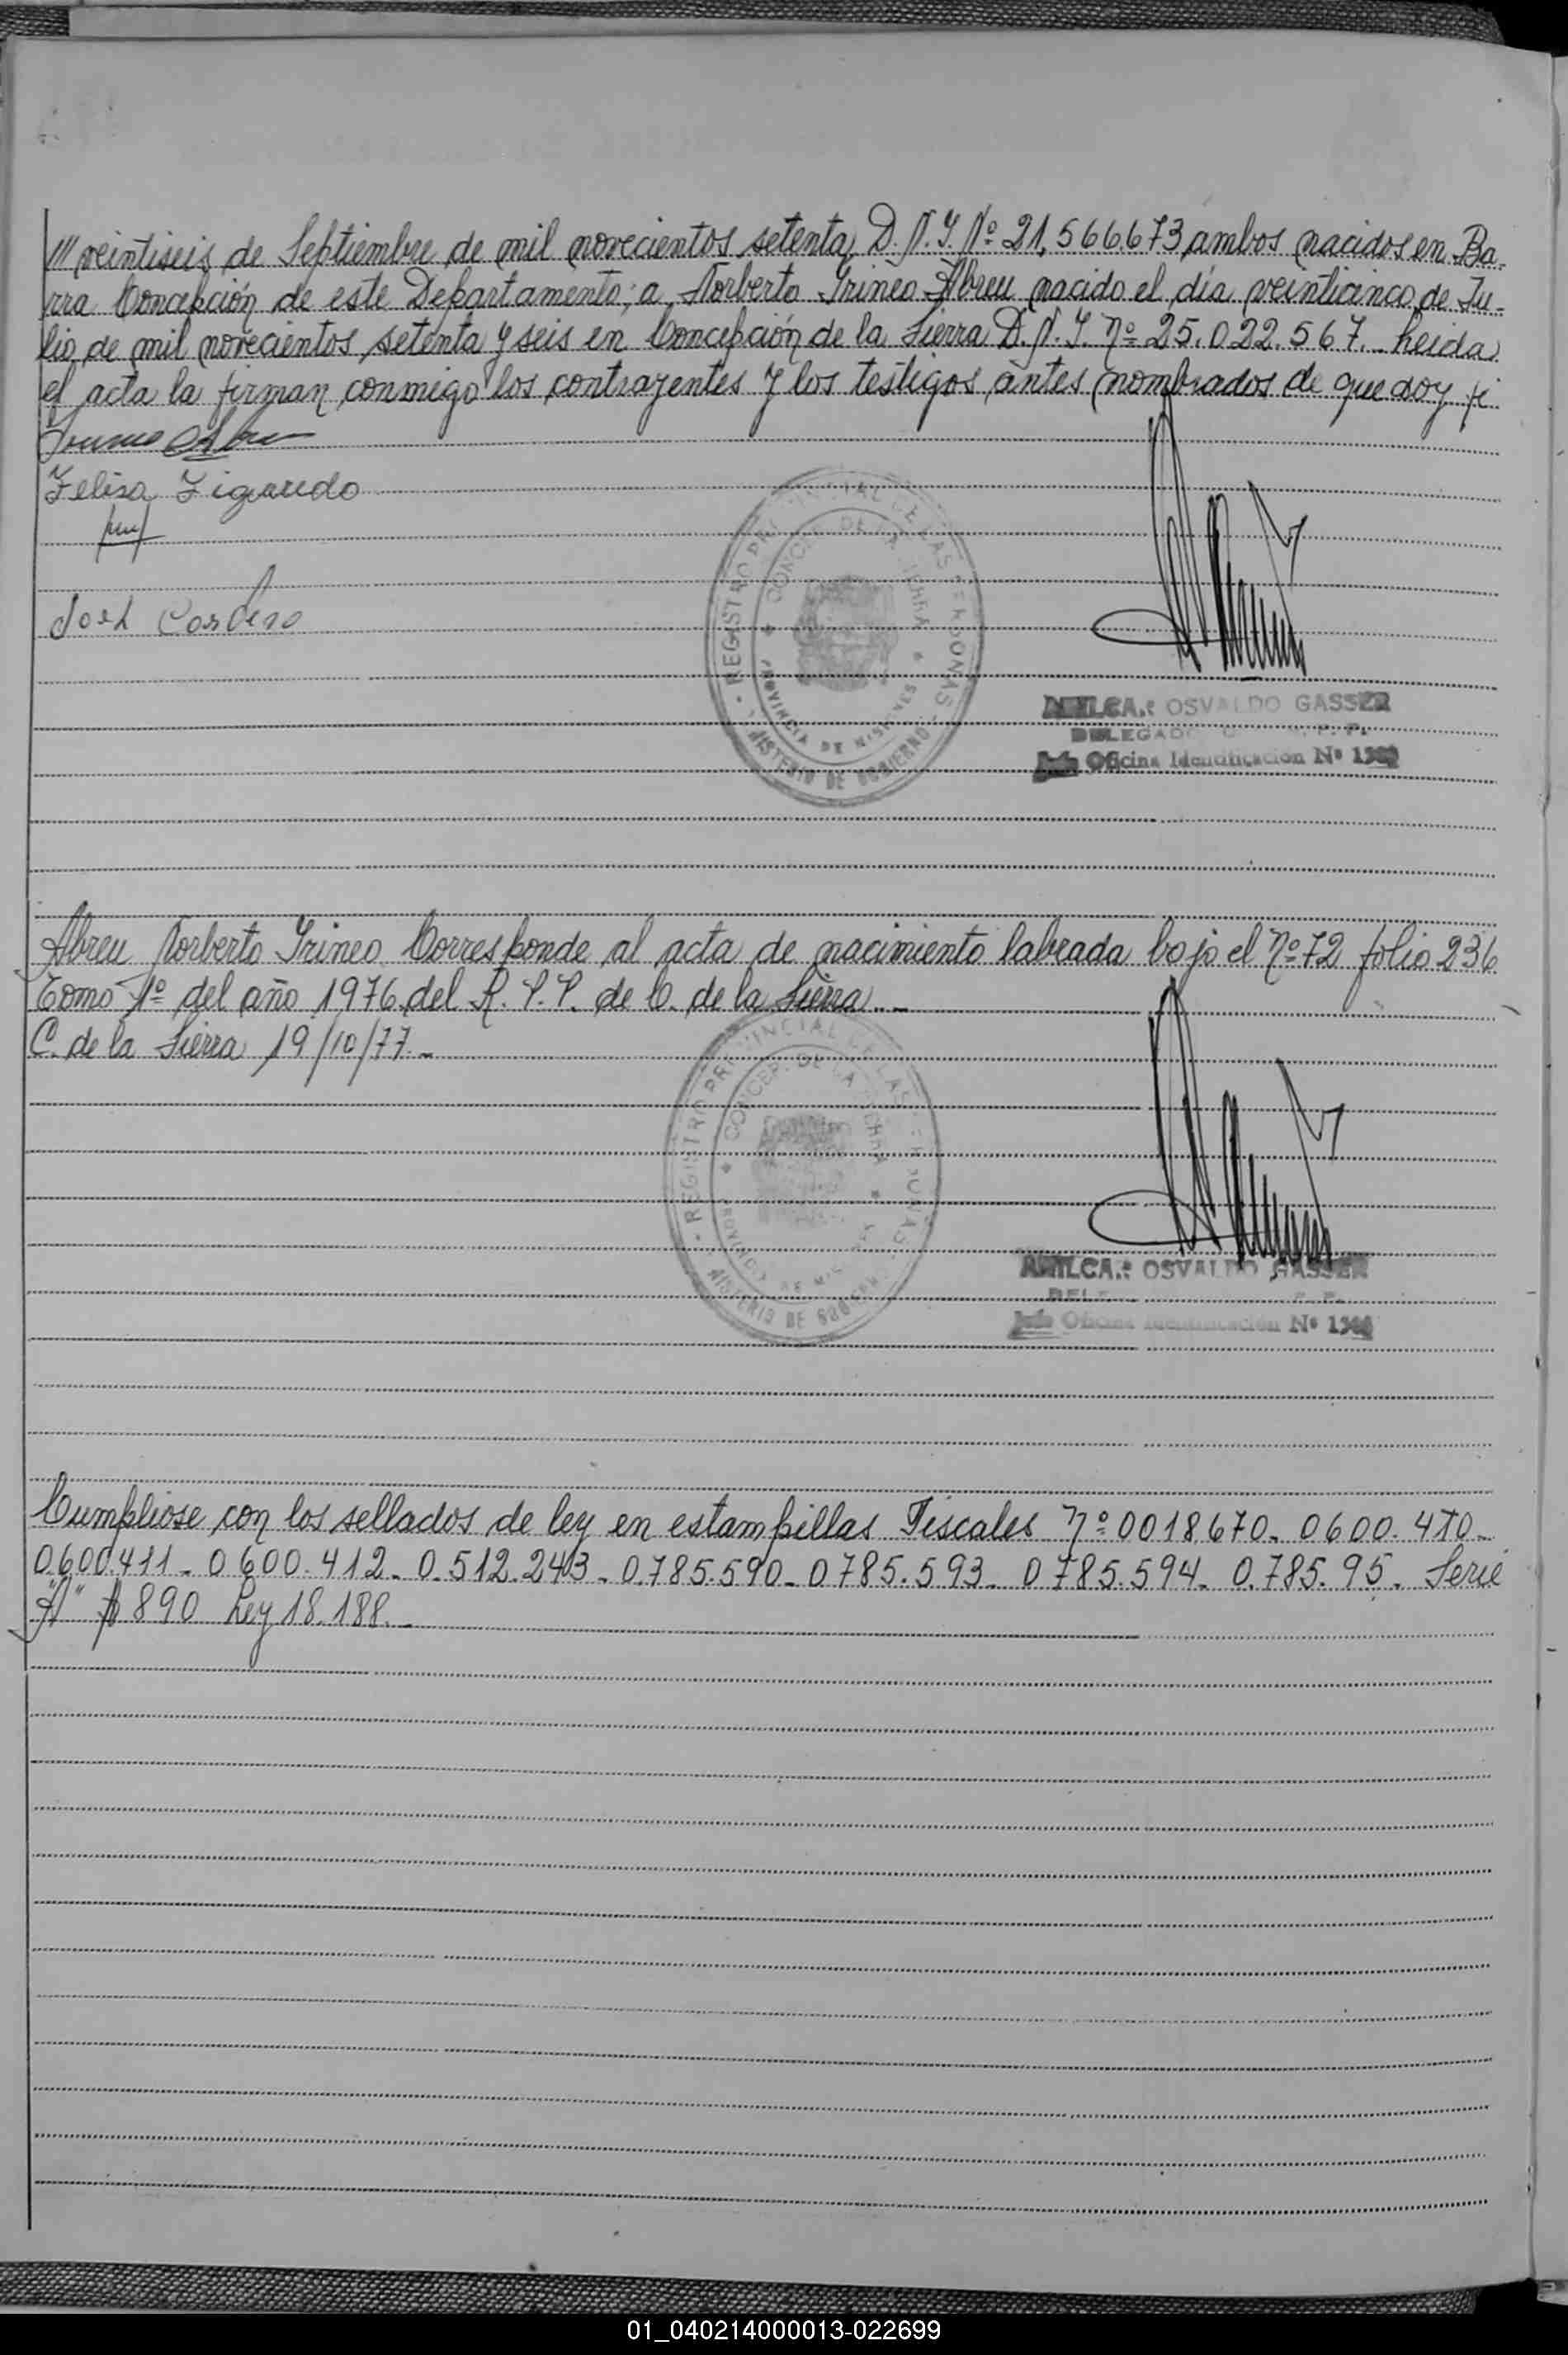 /// veintiseis de Septiembre de mil novecientos setenta, D.N.I. Nº 21.566.673 ambos nacidos en Ba-
rra Concepción de este Departamento; a Norberto Irineo Abreu nacido el día veinticinco de Ju-
lio de mil novecientos setenta y seis en Concepción de la Sierra D.N.I. Nº 25.022.567. Leida
el acta la firman conmigo los contrayentes y los testigos antes nombrados de que doy fé.
Felisa Figueredo
José Cordero
REGISTRO PROVINCIAL DE LAS PERSONAS
CONCEP. DE LA SIERRA
PROVINCIA DE MISIONES
MINISTERIO DE GOBIERNO
AMILCAR OSVALDO GASSER
DELEGADO
Jefe Oficina Identificación Nº
Abreu Norberto Irineo Corresponde al acta de nacimiento labrada bajo el Nº 72 folio 236
Tomo 1º del año 1976 del R.P.P. de C. de la Sierra.-
C. de la Sierra 19/10/77.-
REGISTRO PROVINCIAL DE LAS PERSONAS
CONCEP. DE LA SIERRA
PROVINCIA DE MISIONES
MINISTERIO DE GOBIERNO
AMILCAR OSVALDO GASSER
Jefe Oficina Identificación Nº
Cumpliose con los sellados de ley en estampillas Fiscales Nº 0018670- 0600.410-
0.600.411- 0600.412- 0.512.243- 0.785.590- 0785.593- 0785.594- 0.785.95. Serie
"A" $ 890 Ley 18.188.-
01_040214000013-022699